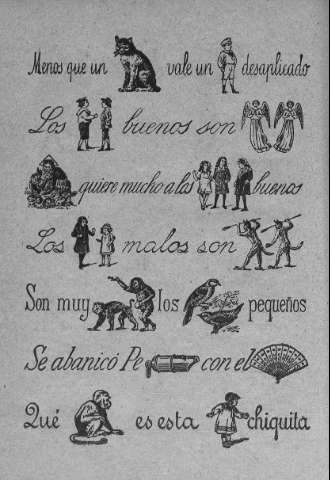 Menos que un vale un desaplicado
Los buenos son
quiere mucho a los buenos
Los malos son
Son muy los pequeños
Se abanicó Pe con el
Qué es esta chiquita